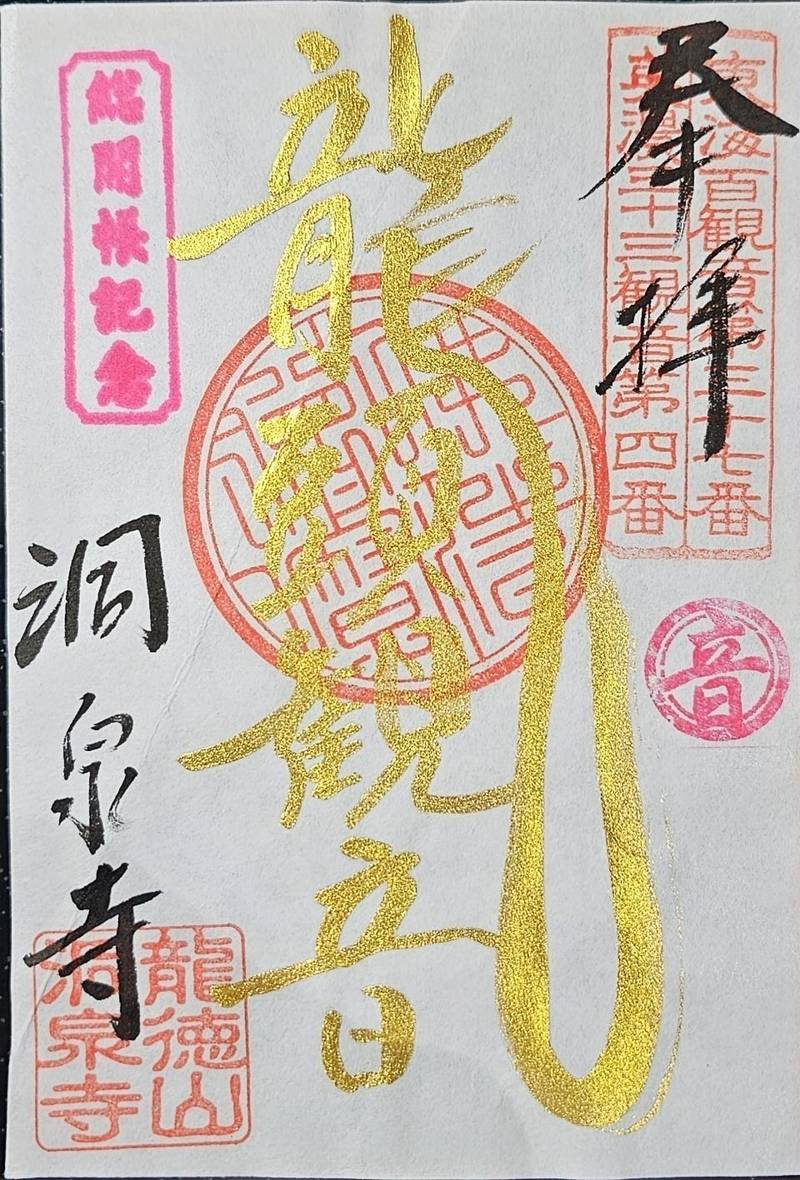 奉拝
東海百観音第三十七番
美濃三十三観音第四番
音
龍頭観音
総開帳記念
洞泉寺
龍徳山
洞泉寺